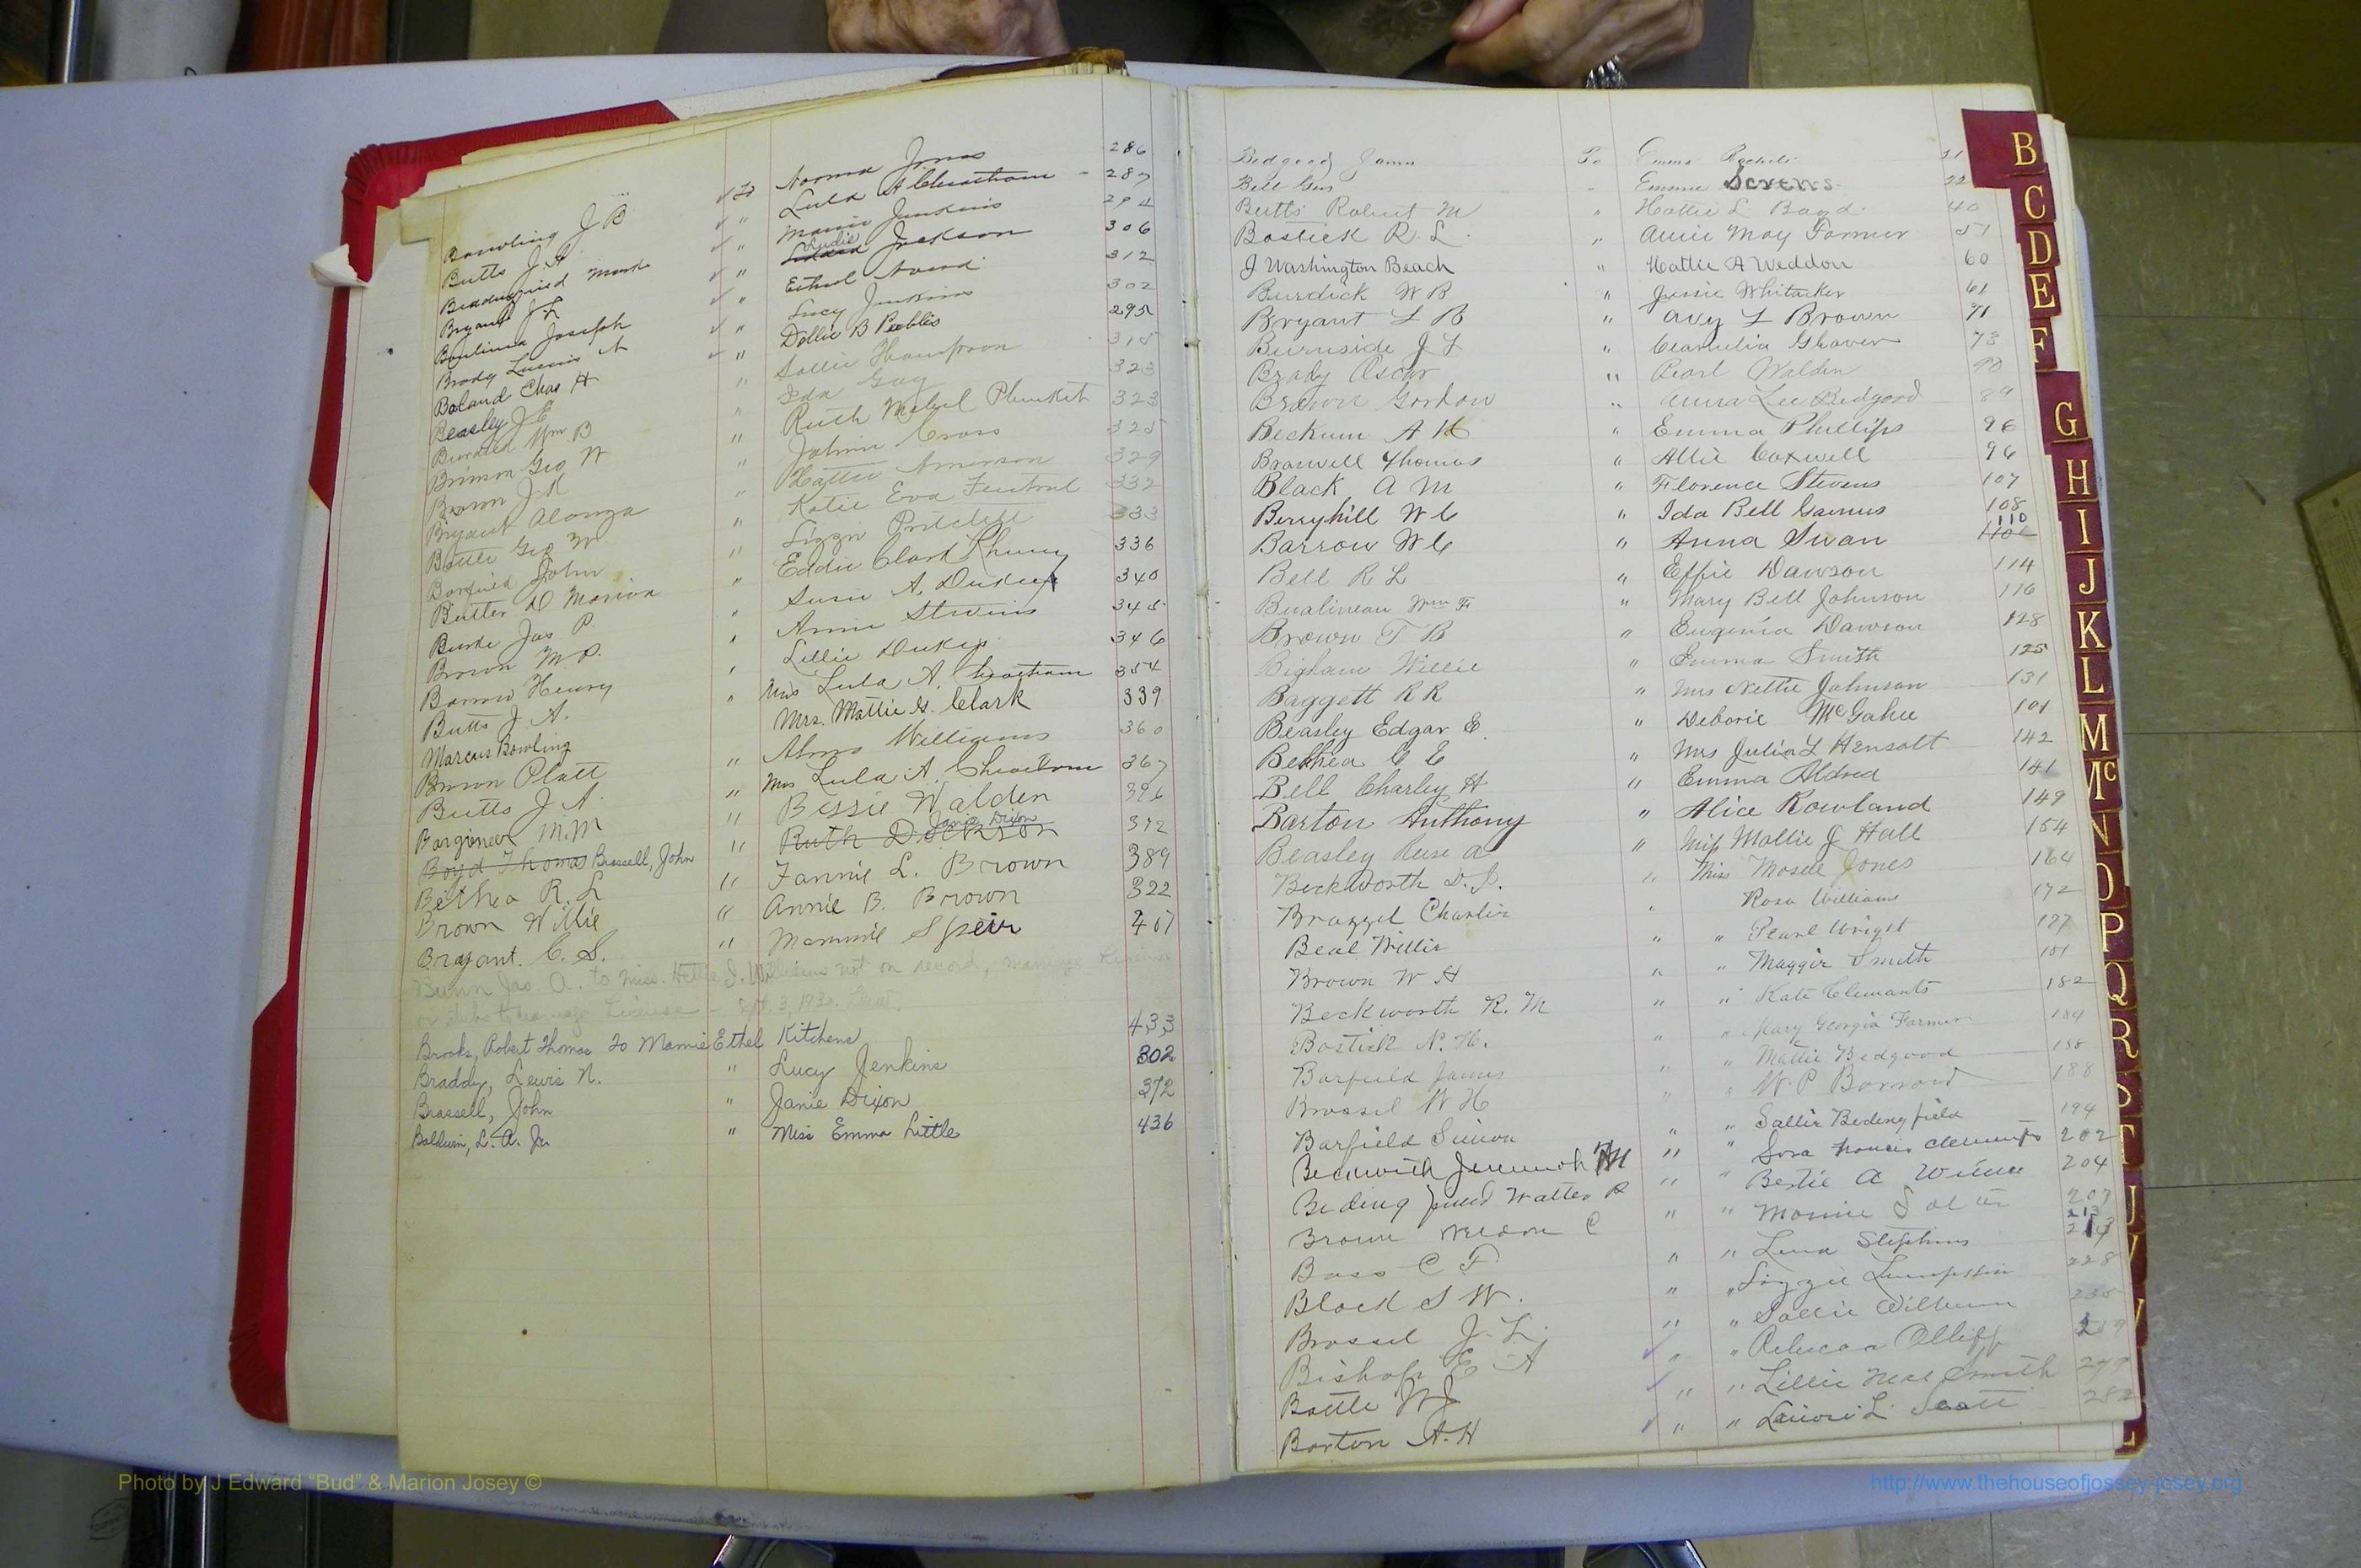 Bowling J B ✓ To Norma Jones 286
Butts J. A. ✓ " Lula A Cheatham - 287
Beddingfield ✓ " Mamie Junkins 294
Bryant J L ✓ " Ludie Jackson 306
Joseph ✓ " Ethel 312
Brady Lewis N ✓ " Lucy Jenkins 302
Boland Chas H ✓ " Dollie B Peebles 295
Beasley J E " Sallie Thompson 315
Wm B " Ida Gay 323
Brinson Geo W " Ruth Mabel Plunkett 323
Brown J. K " Johnie Cross 325
Bryant Alonza " Hattie Amerson 329
Battle Geo W " Katie Eva 332
Barfield John " Lizzie 333
Butler D Marion " Eddie Clark 336
Burke Jas P. " Susie A. 340
Brown M. P. " Annie Stevens 345
Barrow Henry " Lillie 346
Butts J. A. " Mrs Lula A. Cheatham 354
Marcus Bowling Mrs. Mattie G. Clark 339
Brown Platt " Alma Williams 360
Butts J A. " Mrs Lula A. Cheatham 367
M.M " Bessie Walden 396
Boyd Thomas Brassell, John " Ruth Dickson Janie Dixon 372
Bethea R. L " Fannie L. Brown 389
Brown Willie " Annie B. Brown 322
Bryant. C. S. " Mammie Speir 407
Bunn Jas. A. to Miss. Hettie J. Williams not on record, marriage license
or License - Sept. 3, 1930.
Brooks, Robert Thomas to Mamie Ethel Kitchens 433
Braddy, Lewis N. " Lucy Jenkins 302
Brassell, John " Janie Dixon 372
Baldwin, L. A. Jr. " Miss Emma Little 436
Bedgood James To Emma 21
Bell Gus " Emmie Stevens 22
Butts Robert M " Hattie L Boyd 40
Bostick R. L. " Annie May Farmer 51
J Washington Beach " Hattie A Weddon 60
Burdick W B " Jessie Whitaker 61
Bryant L B " Avy L Brown 71
Burnside J L " Glover 73
Brady Oscar " Pearl Walden 90
Brown Gordon " Anna Lee Bedgood 89
Beckum A " Emma Phillips 96
Braswell Thomas " Allie Coxwell 96
Black A M " Florence Stevens 107
Berryhill W C " Ida Bell Gaines 108
Barrow W C " Anna Swan 110
Bell R L " Effie Dawson 114
Wm F " Mary Bell Johnson 116
Brown T B " Eugenia Dawson 128
Bigham Willie " Emma Smith 125
Baggett R R " Mrs Nettie Johnson 131
Beasley Edgar E. " McGahee 101
Bethea C E " Mrs Julia L Hensolt 142
Bell Charley H " Emma Aldred 141
Barton Anthony " Alice Rowland 149
Beasley " Miss Mollie J Hall 154
Beckworth D. J. " Miss Jones 164
Brazzel Charlie " Rosa Williams 172
Beal Willie " " Pearl Wright 177
Brown W H " " Maggie Smith 181
Beckworth R. M " " Kate Clemants 182
Bostick N. H. " " Mary Georgia Farmer 184
Barfield James " " Mattie Bedgood 188
Brassel W H " " W. P Barrow 188
Barfield Simon " " Sallie Bedingfield 194
Beckwith Jeremiah " " Francis Clements 202
Bedingfield Walter R " " Bertie A 204
Brown C " " Mamie 207
Bass C F. " " Lena Stephens 213
Black S W. " " Lizzie Lumpkin 228
Brassel J. L. " " Sallie Wilburn 235
Bishop E A ✓ " " Rebecca Olliff
Battle W J ✓ " " Lillie Mae Smith
Barton A. H ✓ " " L. Scott 282
B
C
D
E
F
G
H
I
J
K
L
M
Mc
N
O
P
Q
R
S
T
U
V
Photo by J Edward "Bud" & Marion Josey ©
http://www.thehouseofjossey-josey.org